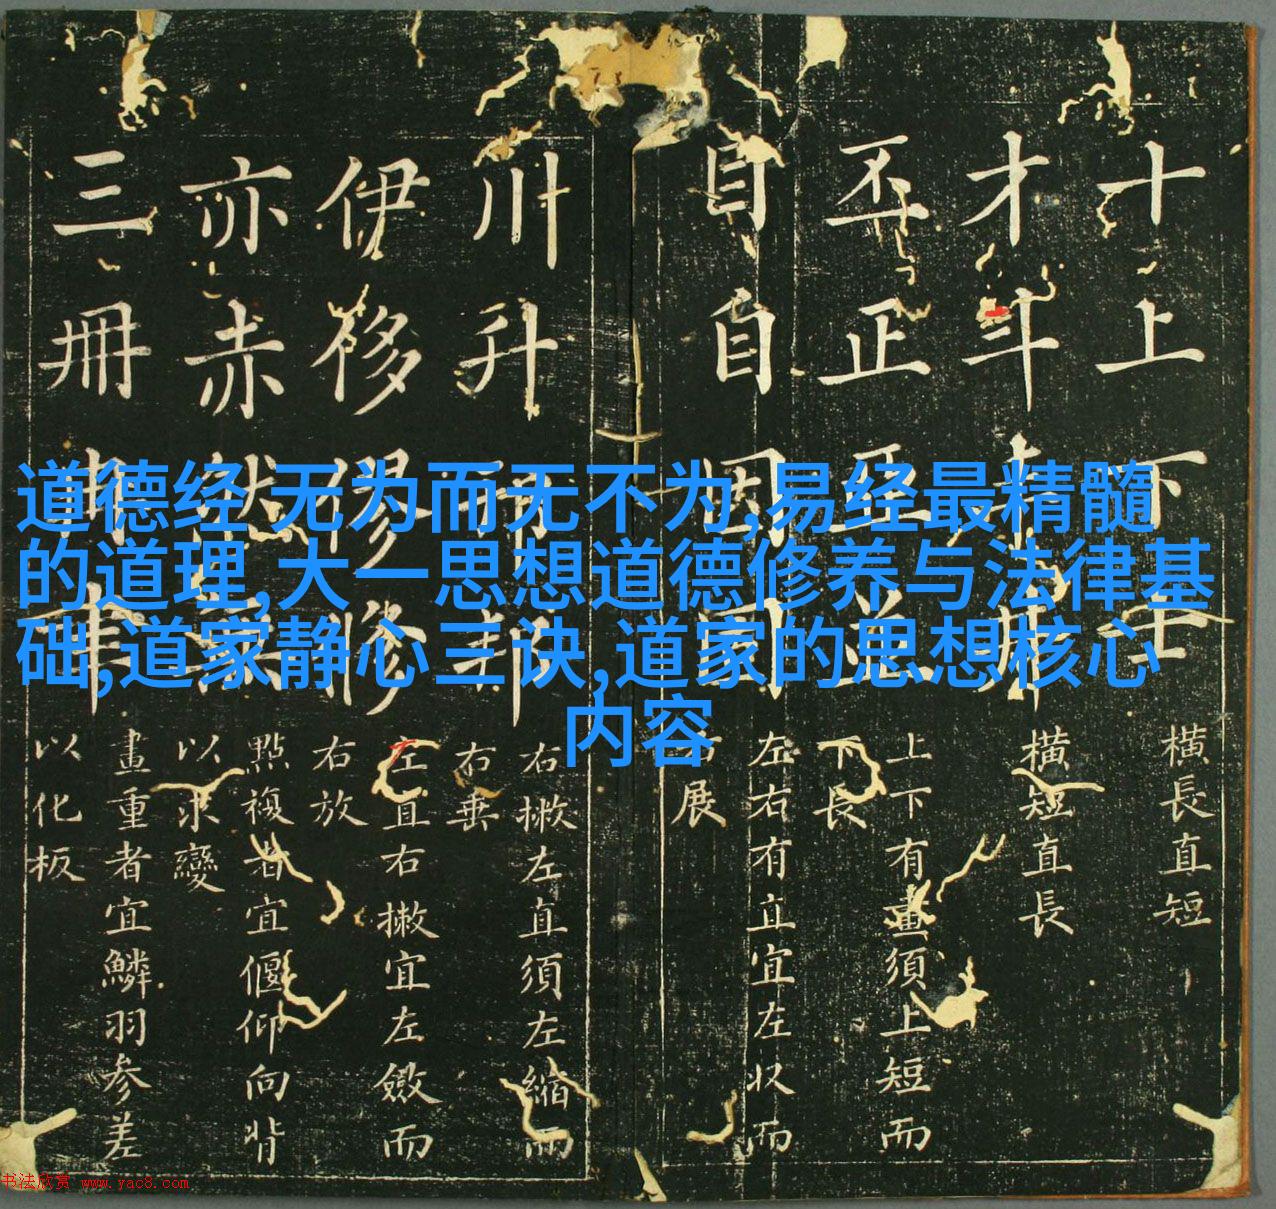 道德经 无为而无不为,易经最精髓
的道理,大一思想道德修养与法律基
础,道家静心三诀,道家的思想核心
内容
十上下
橫長直短
才斗
橫短直長
丕正
上下有畫須上短而
下長
目自因
左右有直宜左收而
右展
川升
右撇左直須左縮而
右垂
伊侈修
左直右撇宜左斂而
右放
亦赤然
點複者宜偃仰向背
以求變
三冊
畫重者宜鱗羽参差
以化板
书法欣赏 www.yac8.com